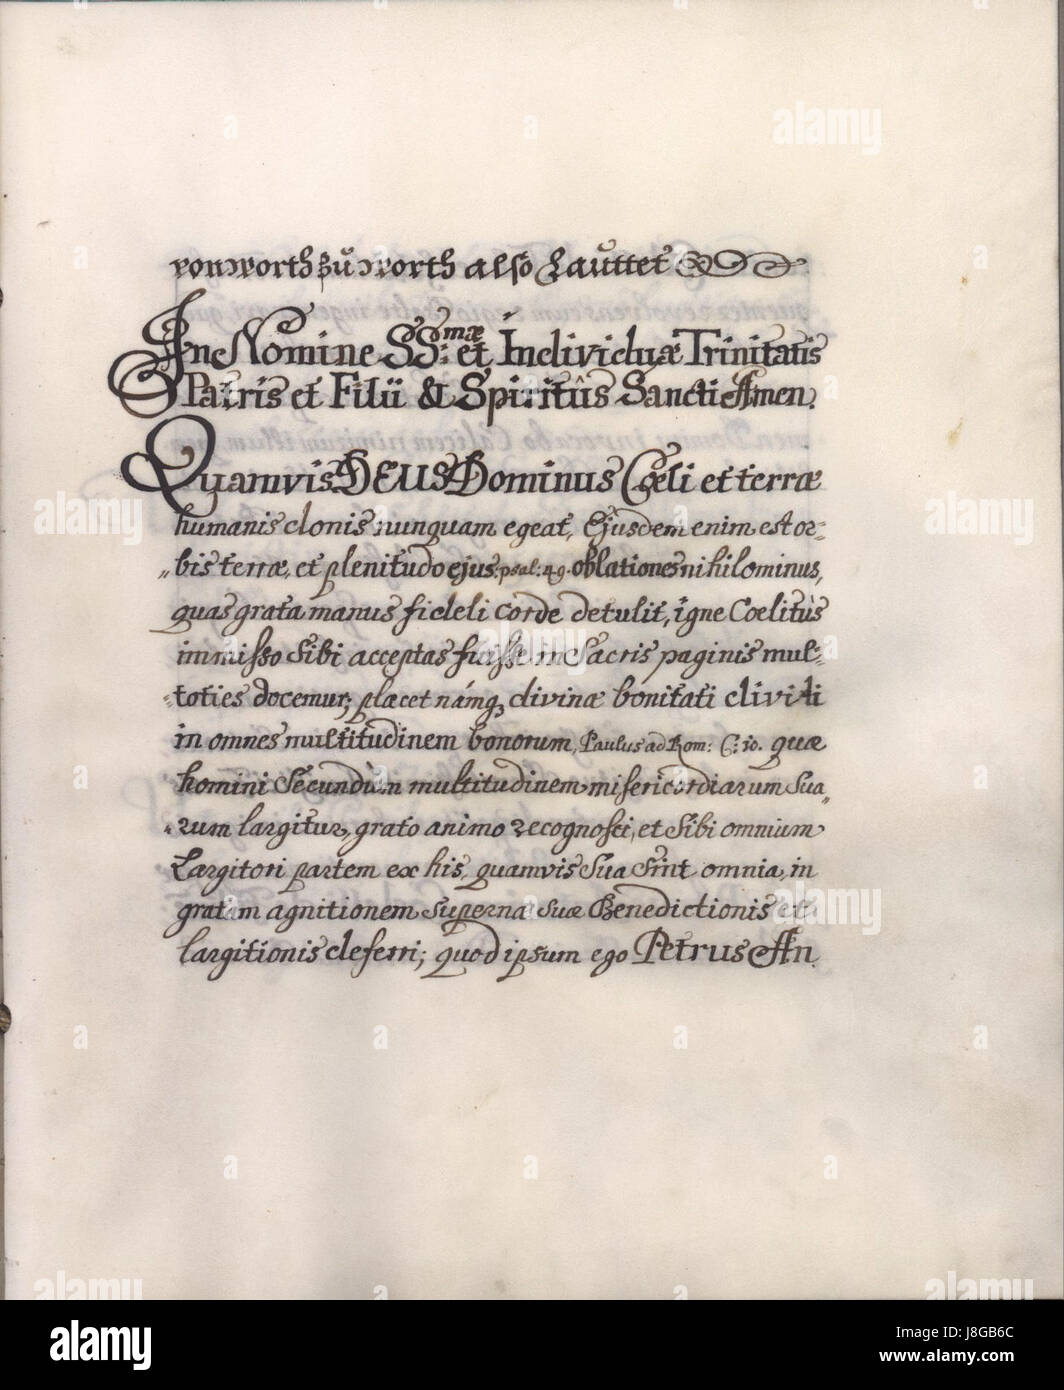 von worth zů worth also Lauttet
In Nomine SS:mæ et Individuæ Trinitatis
Patris et Filii & Spiritûs Sancti Amen.
Quamvis DEUS Dominus Cœli et terræ
humanis donis nunquam egeat, Ejusdem enim est or=
=bis terræ, et plenitudo ejus: psal: 49. oblationes nihilominus,
quas grata manus fideli corde detulit, igne Cœlitùs
immisso Sibi acceptas fuisse in Sacris paginis mul=
=toties docemur; placet námq3 divinæ bonitati dividi
in omnes multitudinem bonorum, Paulus ad Rom: C: 10. quæ
homini Secundùm multitudinem misericordiarum Sua=
=rum largitur, grato animo recognosci, et Sibi omnium
Largitori partem ex his, quamvis Sua Sint omnia, in
gratam agnitionem supernæ suæ Benedictionis et
largitionis deferri; quod ipsum ego Petrus An.
alamy
Image ID: J8GB6C
www.alamy.com